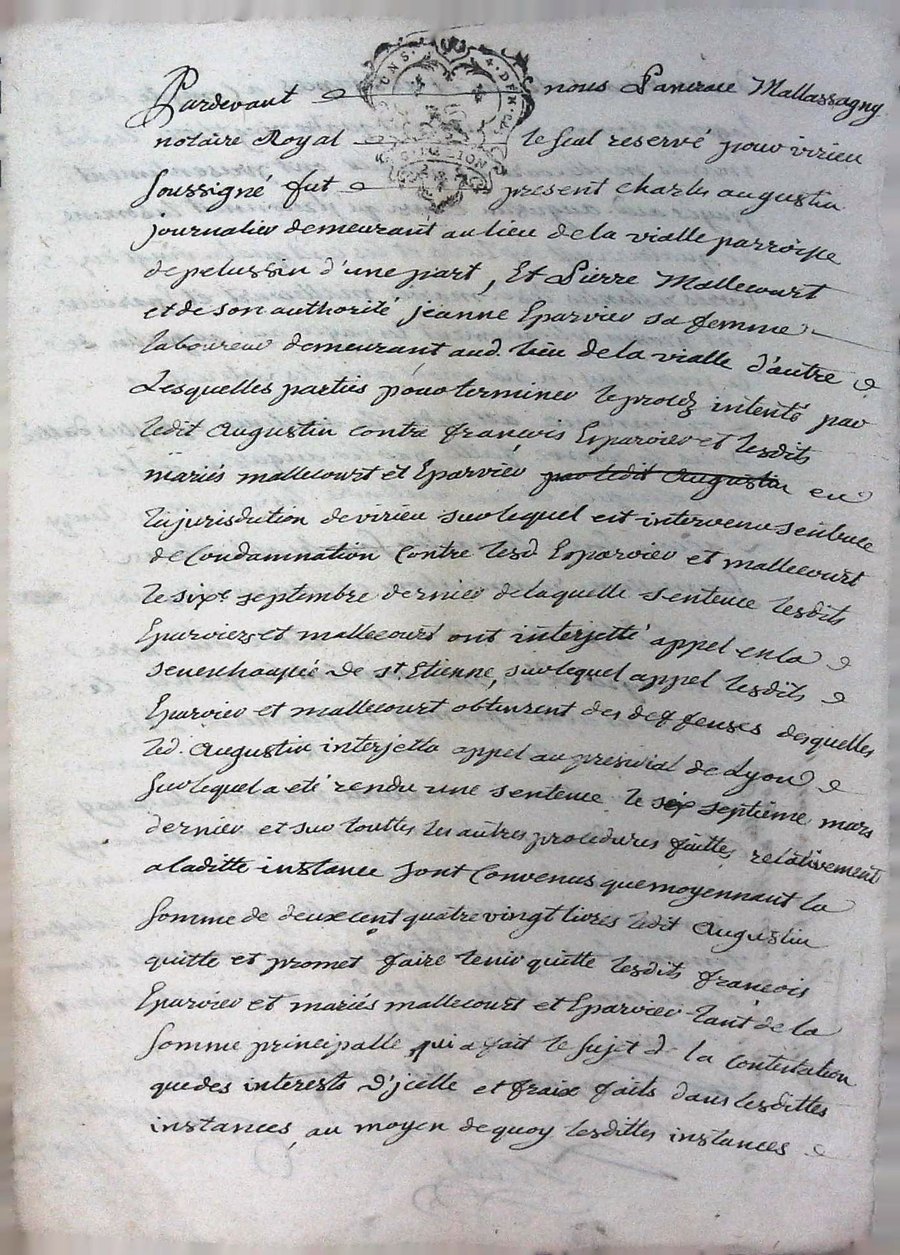 UNS. 4. DEN. G
LION
Pardevant nous Pancrace Mallassagny
notaire Royal le seul reservé pour virieu
soussigné fut present charles augustin
journalier demeurant au lieu de la vialle parroisse
de pelussin d'une part, Et Pierre Mallecourt
et de son authorité jeanne Eparvier sa femme
laboureur demeurant aud. lieu de la vialle d'autre
Lesquelles parties pour terminer le procez intenté par
ledit Augustin contre françois Eparvier et lesdits
mariés mallecourt et Eparvier par ledit Augustin en
la jurisdiction de virieu sur lequel est intervenu sentence
de Condamnation Contre lesd Eparvier et mallecourt
le sixe septembre dernier de laquelle sentence lesdits
Eparviers et mallecourt ont interjetté appel en la
senechaussée de st. Etienne, sur lequel appel lesdits
Eparvier et mallecourt obtinrent des deffenses desquelles
led. Augustin interjetta appel au presidial de Lyon
sur lequel a eté rendu une sentence le six septieme mars
dernier et sur touttes les autres procedures faittes relativement
a laditte instance sont Convenus que moyennant la
somme de deux cent quatre vingt livres ledit Augustin
quitte et promet faire tenir quitte lesdits françois
Eparvier et mariés mallecourt et Eparvier tant de la
somme principalle qui a fait le sujet de la contestation
que des interests d'jcelle et fraix faits dans lesdittes
instances, au moyen de quoy lesdittes instances